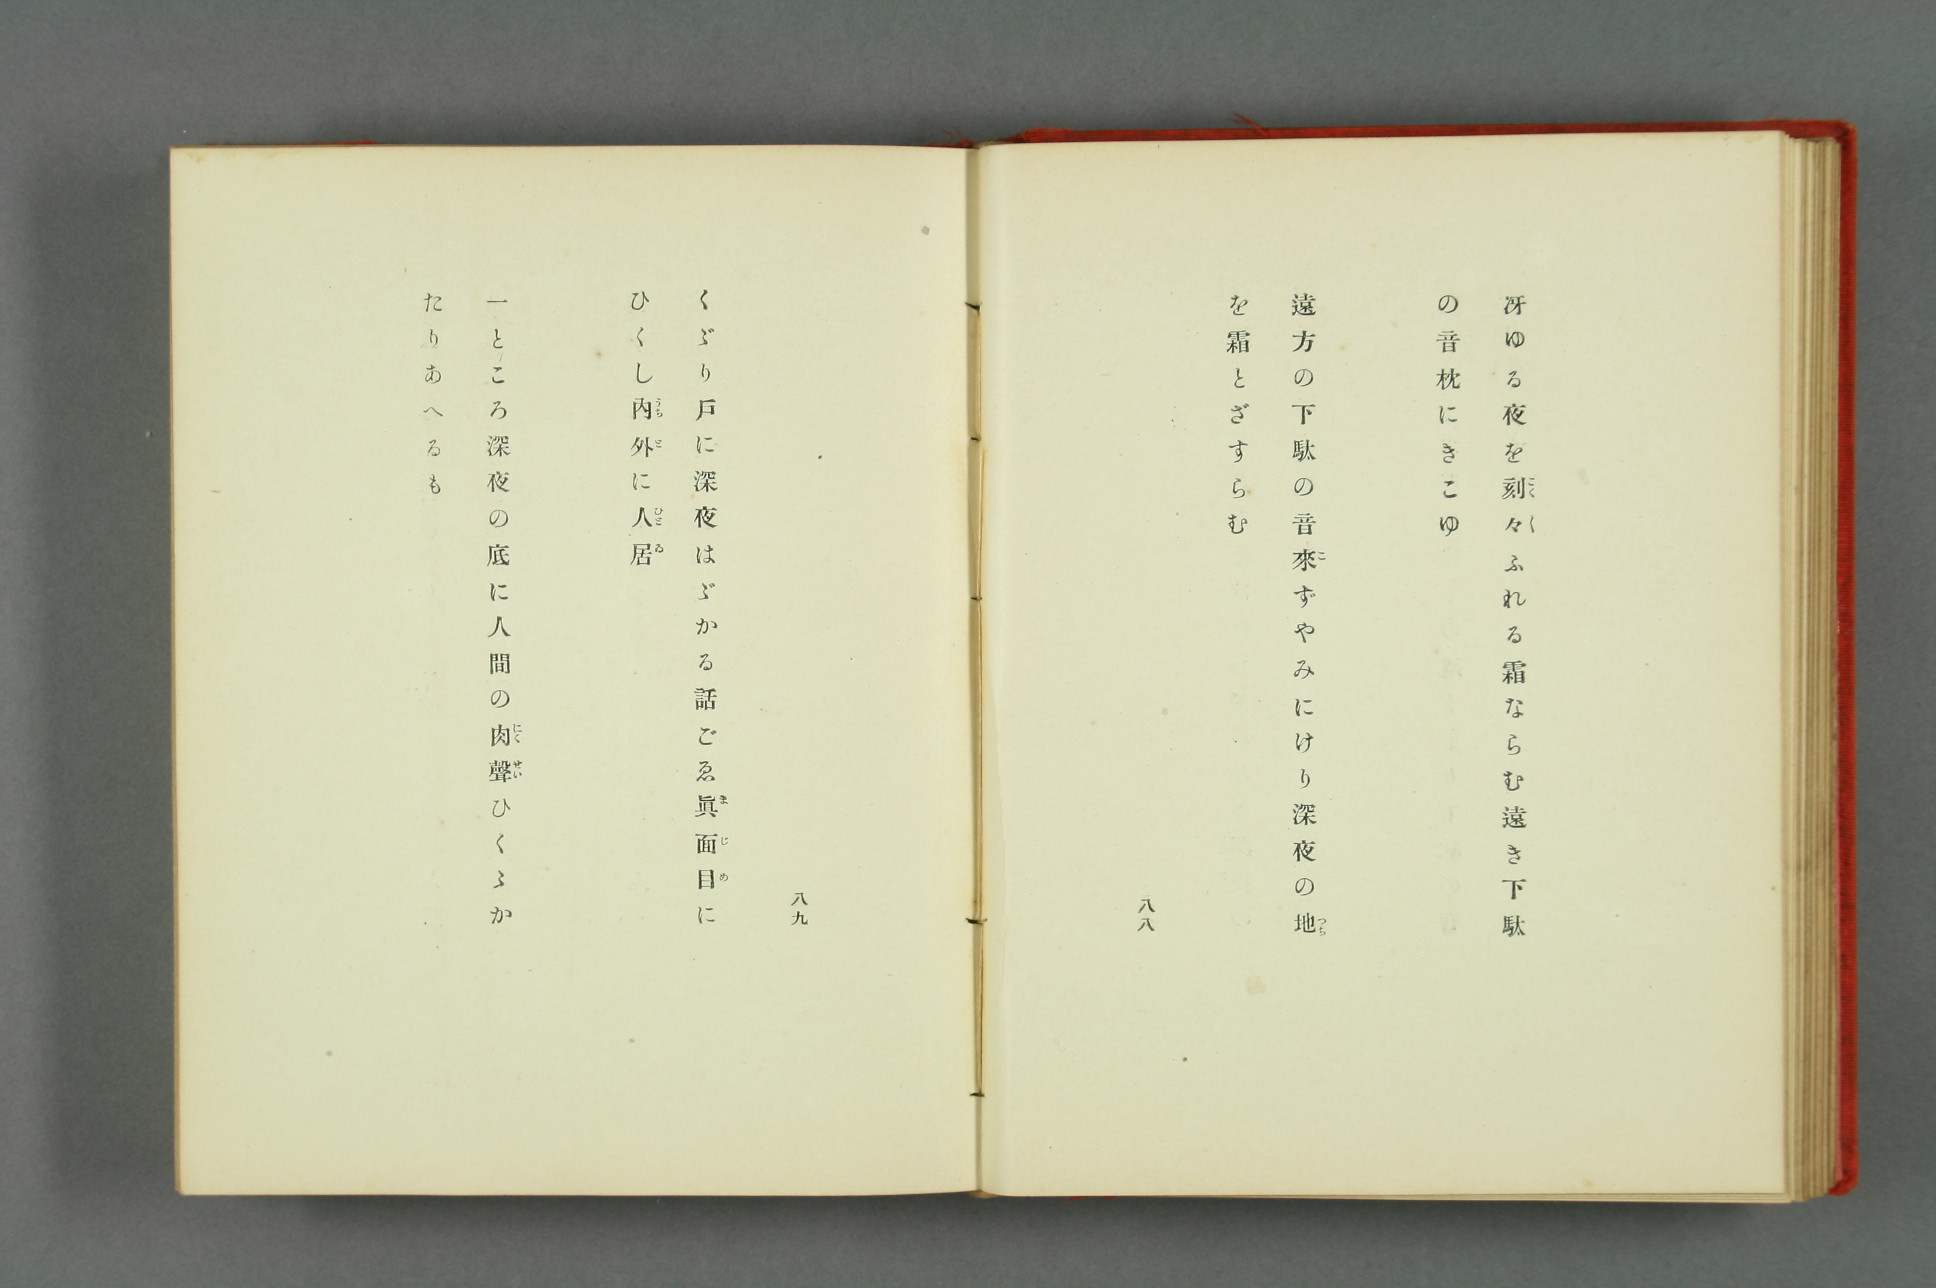 冴ゆる夜を刻々ふれる霜ならむ遠き下駄
の音枕にきこゆ
遠方の下駄の音來ずやみにけり深夜の地
を霜とざすらむ
八八
八九
くゞり戸に深夜はゞかる話ごゑ眞面目に
ひくし內外に人居
一ところ深夜の底に人間の肉聲ひくゝか
たりあへるも